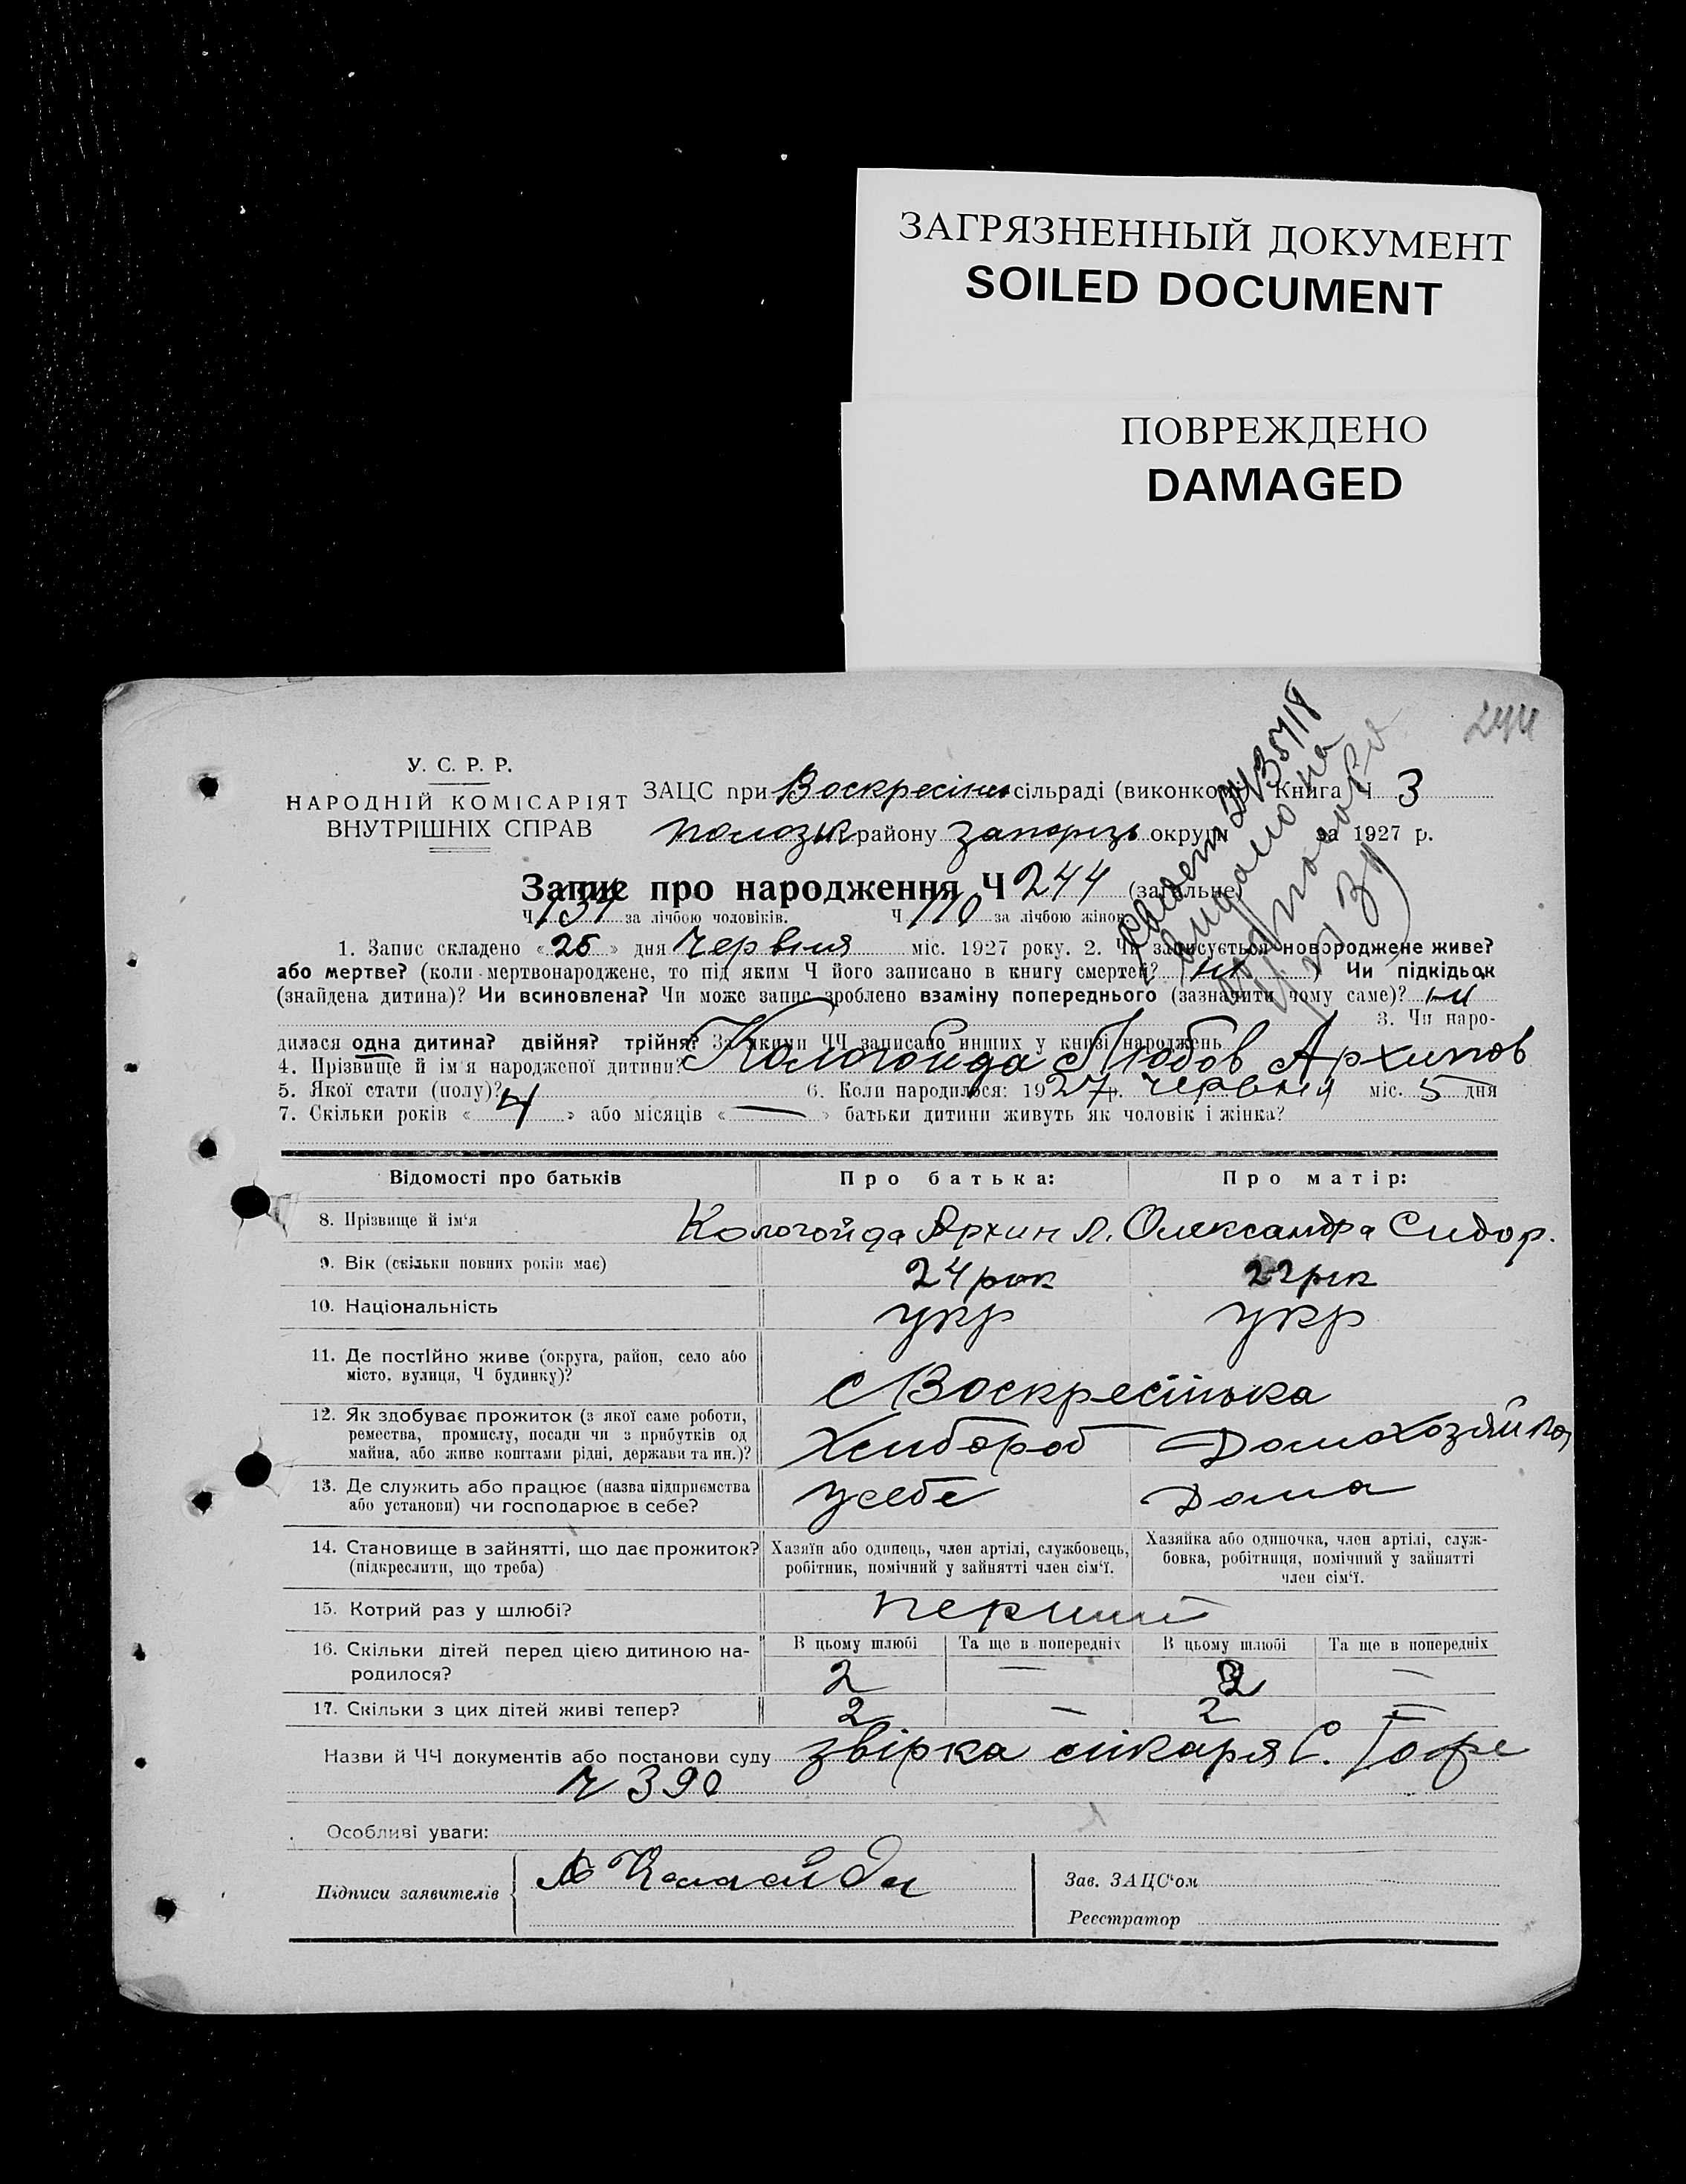 ЗАГРЯЗНЕННЫЙ ДОКУМЕНТ
SOILED DOCUMENT
ПОВРЕЖДЕНО
DAMAGED
У. С. Р. Р.
НАРОДНІЙ КОМІСАРІЯТ
ВНУТРІШНІХ СПРАВ
ЗАЦС при Воскресінь сільраді (виконкомі) Книга Ч 3
району Запорізь округи за 1927 р.
Запис про народження Ч 244 (загальне)
Ч 134 за лічбою чоловіків. Ч 110 за лічбою жінок
1. Запис складено «25» дня Червіня міс. 1927 року. 2. Чи записується новороджене живе?
або мертве? (коли мертвонароджене, то під яким Ч його записано в книгу смертей? ні ) Чи підкідьок
(знайдена дитина)? Чи всиновлена? Чи може запис зроблено взаміну попереднього (зазначити чому саме)? ні
3. Чи наро-
дилася одна дитина? двійня? трійня? За якими ЧЧ записано инших у книзі народжень
4. Прізвище й ім'я народженої дитини? Кологойда Любов Архипов
5. Якої стати (полу)? 6. Коли народилося: 1927 р. Червіня міс. 5 дня
7. Скільки років « 4 » або місяців « — » батьки дитини живуть як чоловік і жінка?
Відомості про батьків Про батька: Про матір:
8. Прізвище й ім'я Кологойда Архип Л. Олександра Сидор.
9. Вік (скільки повних років має) 24 рок 22 рік
10. Національність укр укр
11. Де постійно живе (округа, район, село або
місто, вулиця, Ч будинку)? с Воскресінька
12. Як здобуває прожиток (з якої саме роботи,
ремества, промислу, посади чи з прибутків од
майна, або живе коштами рідні, держави та ин.)? Хлибороб Домохозяйка
13. Де служить або працює (назва підприємства
або установи) чи господарює в себе? у себе Дома
14. Становище в зайнятті, що дає прожиток? Хазяїн або одинець, член артілі, службовець, Хазяйка або одиночка, член артілі, служ-
(підкреслити, що треба) робітник, помічний у зайнятті член сім'ї. бовка, робітниця, помічний у зайнятті
член сім'ї.
15. Котрий раз у шлюбі? перший
16. Скільки дітей перед цією дитиною на- В цьому шлюбі Та ще в попередніх В цьому шлюбі Та ще в попередніх
родилося? 2 — 2 —
17. Скільки з цих дітей живі тепер? 2 — 2 —
Назви й ЧЧ документів або постанови суду С.
Ч 390
Особливі уваги:
Підписи заявителів
Зав. ЗАЦС'ом
Реєстратор